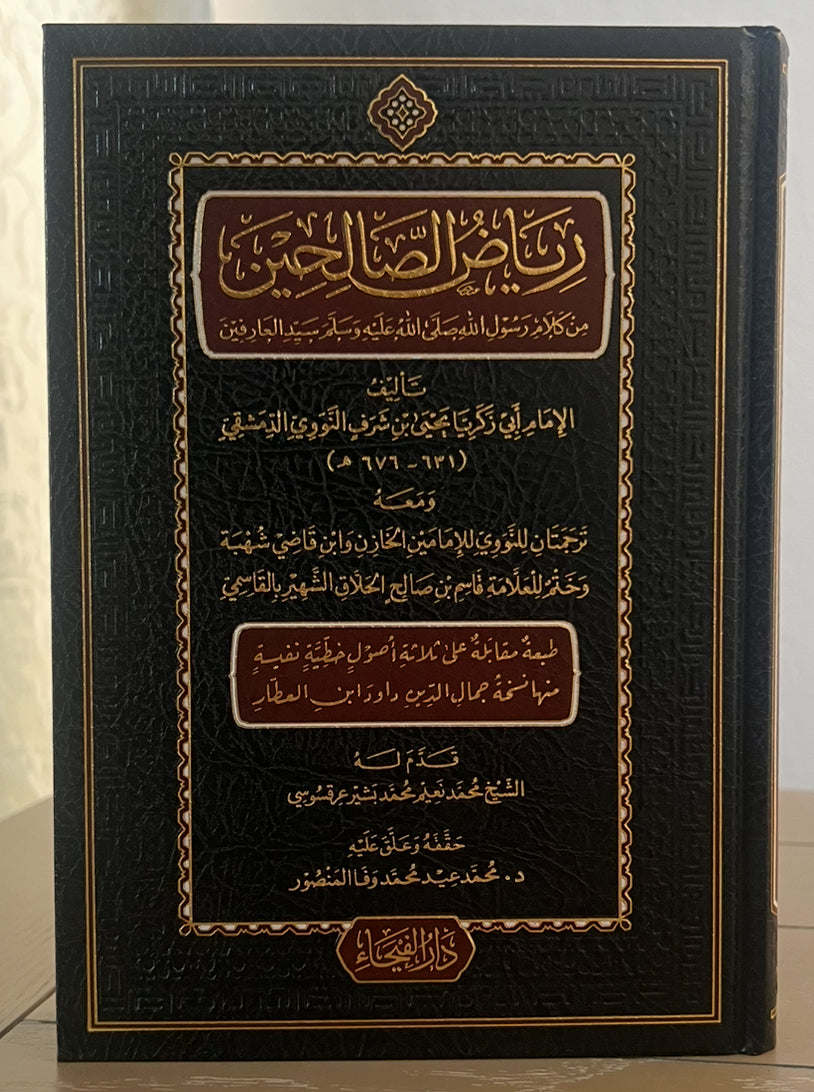 رِيَاضُ الصَّالِحِيْنَ
مِنْ كَلَامِ رَسُوْلِ اللهِ صَلَّى اللهُ عَلَيْهِ وَسَلَّمَ سَيِّدِ العَارِفِيْنَ
تَأْلِيْفُ
الإِمَامِ أَبِيْ زَكَرِيَّا يَحْيَىٰ بْنِ شَرَفٍ النَّوَوِيِّ الدِّمَشْقِيِّ
(٦٣١ - ٦٧٦ هـ)
وَمَعَهُ
تَرْجَمَتَانِ لِلنَّوَوِيِّ لِلإِمَامَيْنِ الخَازِنِ وَابْنِ قَاضِيْ شُهْبَة
وَخَتْمٌ لِلْعَلَّامَةِ قَاسِمِ بْنِ صَالِحٍ الحَلَّاقِ الشَّهِيْرِ بِالقَاسِمِيِّ
طبعةٌ مقابَلةٌ على ثلاثةِ أصُولٍ خطِّيَّةٍ نفيسةٍ
منها نسخةُ جمالِ الدِّينِ داودَ ابنِ العطّارِ
قَدَّمَ لَهُ
الشَّيْخُ مُحَمَّد نَعِيْم مُحَمَّد بَشِيْر عرقسُوسِي
حَقَّقَهُ وَعَلَّقَ عَلَيْهِ
د. مُحَمَّد عِيْد مُحَمَّد وَفَا المَنْصُوْر
دَارُ الفَيْحَاءِ